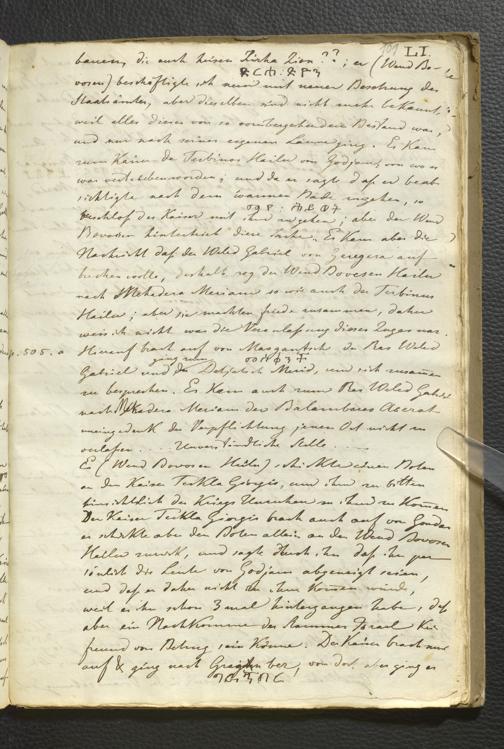 101 LI.
bauen, die auch heisen Zirha Zion ??; er (Wend Bo-
vosen) beschäftigte sich nun mit neuer Besetzung der
Staatsämter, aber dieselben sind nicht mehr bekannt,
weil alles dieses von so vorübergehendem Bestand war,
und nur nach seiner eigenen Laune ging. Es Kam
zum Kaiser der Terbinos Hailu von Godjam, von wo er
war vertrieben worden; und da er sagte daß er beab-
sichtigte nach dem warmen Bade zu gehen, so
beschloß der Kaiser mit ihm zu gehen; aber der Wend
Bovosen hintertrieb diese Sache. Es Kam aber die
Nachricht daß der Weled Gabriel von auf
brechen wolle, deshalb zog der Wend Bovosen Hailu
nach Mehedera Mariam so wie auch der Terbinos
Hailu; aber sie machten friede zusammen, daher
weis ich nicht was die Veranlaßung dieses Zuges war.
p. 505. a Hierauf brach auf von der Ras Weled
Gabriel und der Merid, um sich zusammen
zu besprechen. Es Kam auch zum Ras Weled Gabriel
nach Mehedera Meriam der Balambaras Aserat
uneingedenk der Verpflichtung jenen Ort nicht zu
verlaßen. . . . Unverständliche Stelle . . . .
Er (Wend Bovosen Hailu) schikte einen Boten
an den Kaiser Tekla Giorgis, um ihn zu bitten
hinsichtlich der Kriegs Unruhen zu ihm zu Kommen.
Der Kaiser Tekla Giorgis brach auch auf von Gondar
er schikte aber den Boten allein an den Wend Bovosen
Hailu zurük, und sagte durch ihn daß ihm per-
sönlich die Leute von Godjam abgeneigt seien,
und daß er daher nicht zu ihm Kommen würde,
weil er ihn schon 3 mal hintergangen habe, daß
aber ein NachKomme des Stammes Israel Kein
freund von Betrug sein Könne. Der Kaiser brach nun
auf & ging nach, von dort aber ging er